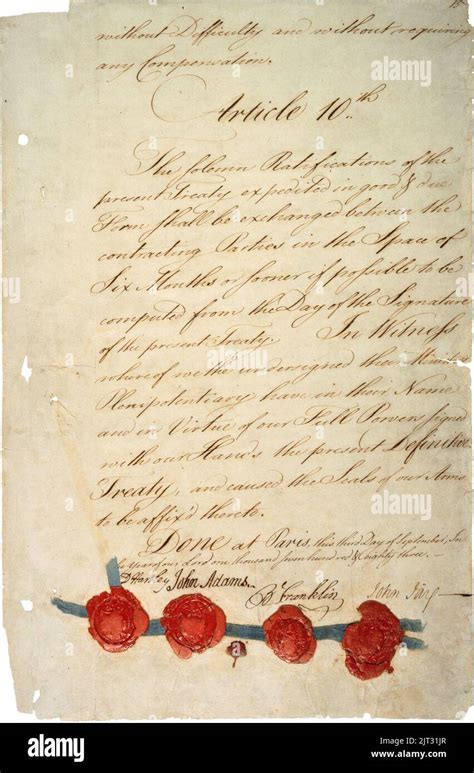 without Difficulty and without requiring
any Compensation.
Article 10th.
The solemn Ratifications of the
present Treaty expedited in good & due
Form shall be exchanged between the
contracting Parties in the Space of
Six Months or sooner if possible to be
computed from the Day of the Signature
of the present Treaty. In Witness
whereof we the undersigned their Ministers
Plenipotentiary have in their Name
and in Virtue of our Full Powers signed
with our Hands the present Definitive
Treaty, and caused the Seals of our Arms
to be affix'd thereto.
Done at Paris, this third Day of September, In
the Year of our Lord one thousand seven hundred & eighty three.
D Hartley John Adams. B Franklin John Jay
alamy
Image ID: 2JT31JR
www.alamy.com